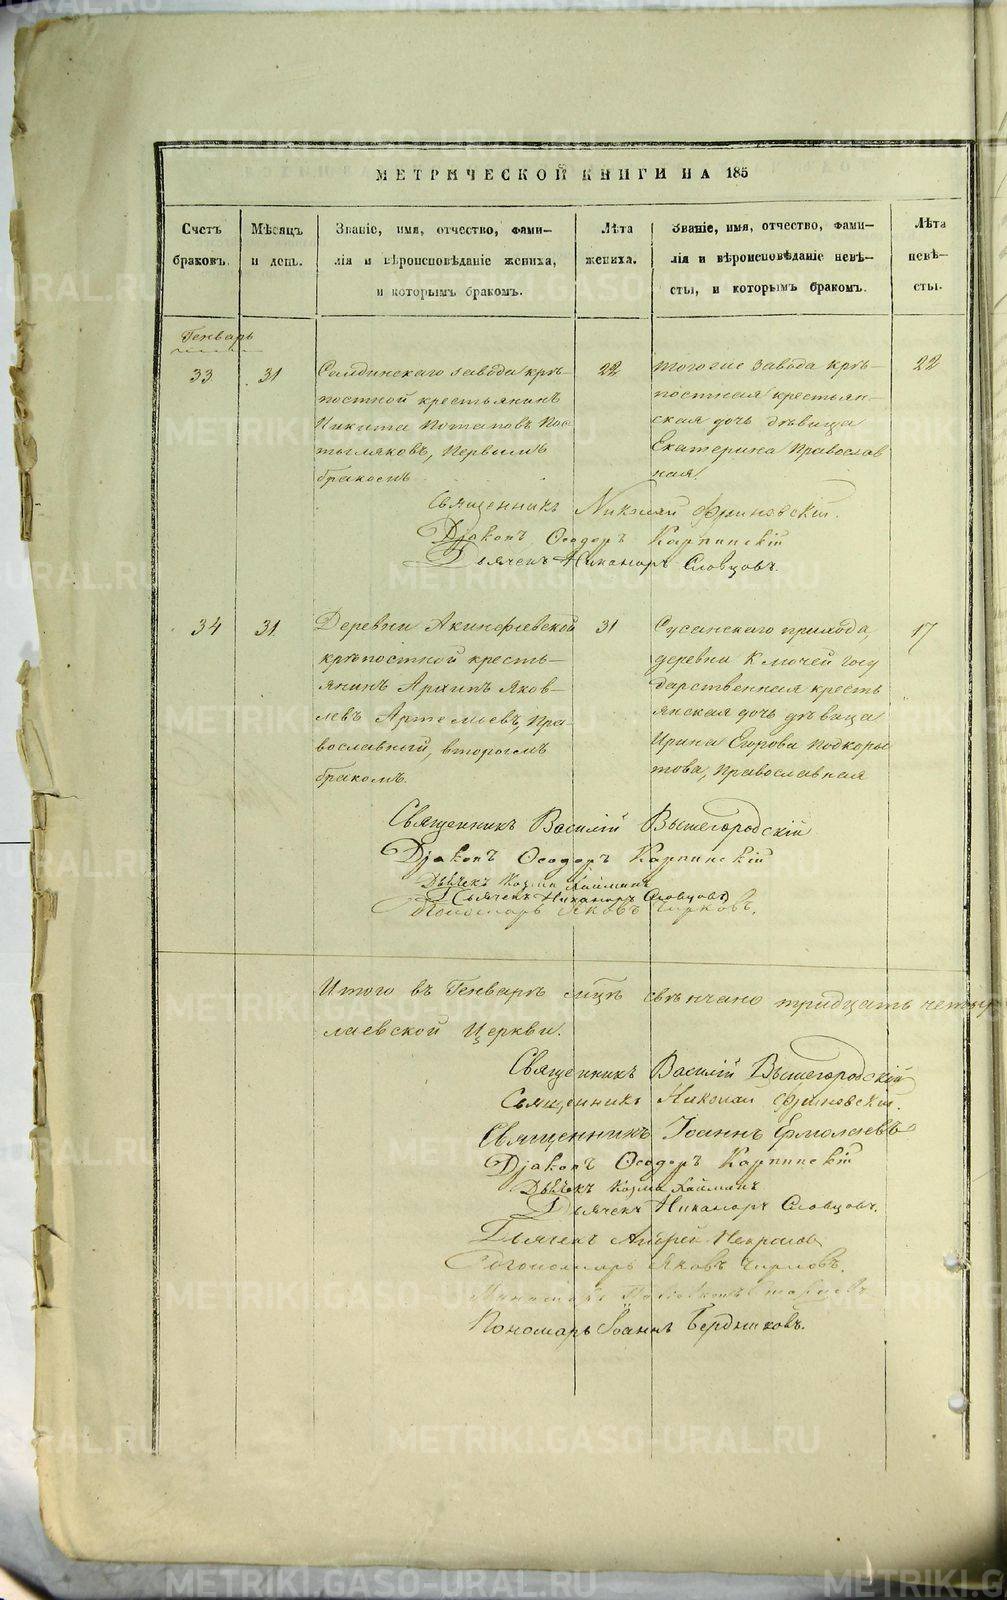 МЕТРИЧЕСКОЙ КНИГИ НА 185
Счетъ браковъ.
Мѣсяцъ и день.
Званіе, имя, отчество, фами-
лія и вѣроисповѣданіе жениха,
и которымъ бракомъ.
Лѣта жениха.
Званіе, имя, отчество, фами-
лія и вѣроисповѣданіе невѣ-
сты, и которымъ бракомъ.
Лѣта невѣ-
сты.
Генварь
33
31
Салдинскаго завода крѣ-
постной крестьянинъ
Никита Потаповъ Пос
тыляковъ, первымъ
бракомъ
22
тогоже завода крѣ-
постная крестьян-
ская дочь дѣвица
Екатерина православ
ная.
22
Священникъ Николай
Діаконъ Ѳеодоръ Карпинскій
Дьячекъ Никаноръ Словцовъ.
34
31.
Деревни Акинфіевской
крѣпостной кресть-
янинъ Архипъ Яков-
левъ Артемьевъ, пра-
вославный, вторымъ
бракомъ.
31
Сусанскаго прихода,
деревни Ключей госу
дарственная кресть
янская дочь дѣвица
Ирина Егорова Подкоры
това, православная
17
Священникъ Василій Вышегородскій
Діаконъ Ѳеодоръ Карпинскій
Дьячекъ Козма
Дьячекъ Никаноръ Словцовъ
Пономарь Яковъ Чирковъ.
Итого въ Генварѣ м-цѣ свѣнчано тридцать четыр
лаевской Церкви.
Священникъ Василій Вышегородскій
Священникъ Николай
Священникъ Іоаннъ Ермолаевъ
Діаконъ Ѳеодоръ Карпинскій
Дьячекъ Козма
Дьячекъ Никаноръ Словцовъ.
Дьячекъ Андрей Некрасовъ
Пономарь Яковъ Чирковъ.
Пономарь Іоаннъ Бердниковъ.
METRIKI.GASO-URAL.RU